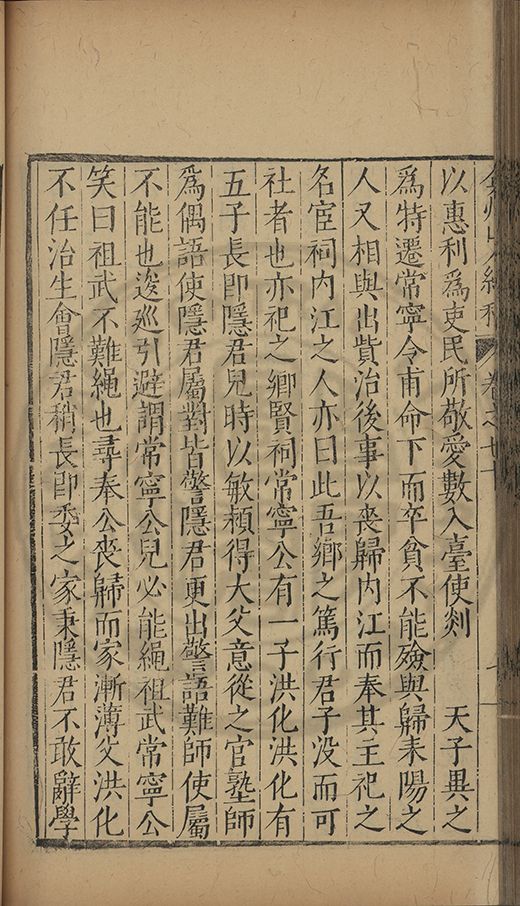 弇州山人續稿 卷之廿
以惠利爲吏民所敬愛數入臺使剡　天子異之
爲特遷常寧令甫命下而卒貧不能殮與歸耒陽之
人又相與出貲治後事以喪歸内江而奉其主祀之
名宦祠内江之人亦曰此吾鄉之篤行君子没而可
社者也亦祀之鄉賢祠常寧公有一子洪化洪化有
五子長即隱君兒時以敏穎得大父意從之官塾師
爲偶語使隱君屬對皆警隱君更出警語難師使屬
不能也逡巡引避謂常寧公兒必能繩祖武常寧公
笑曰祖武不難繩也尋奉公喪歸而家漸薄父洪化
不任治生會隱君稍長即委之家秉隱君不敢辭學